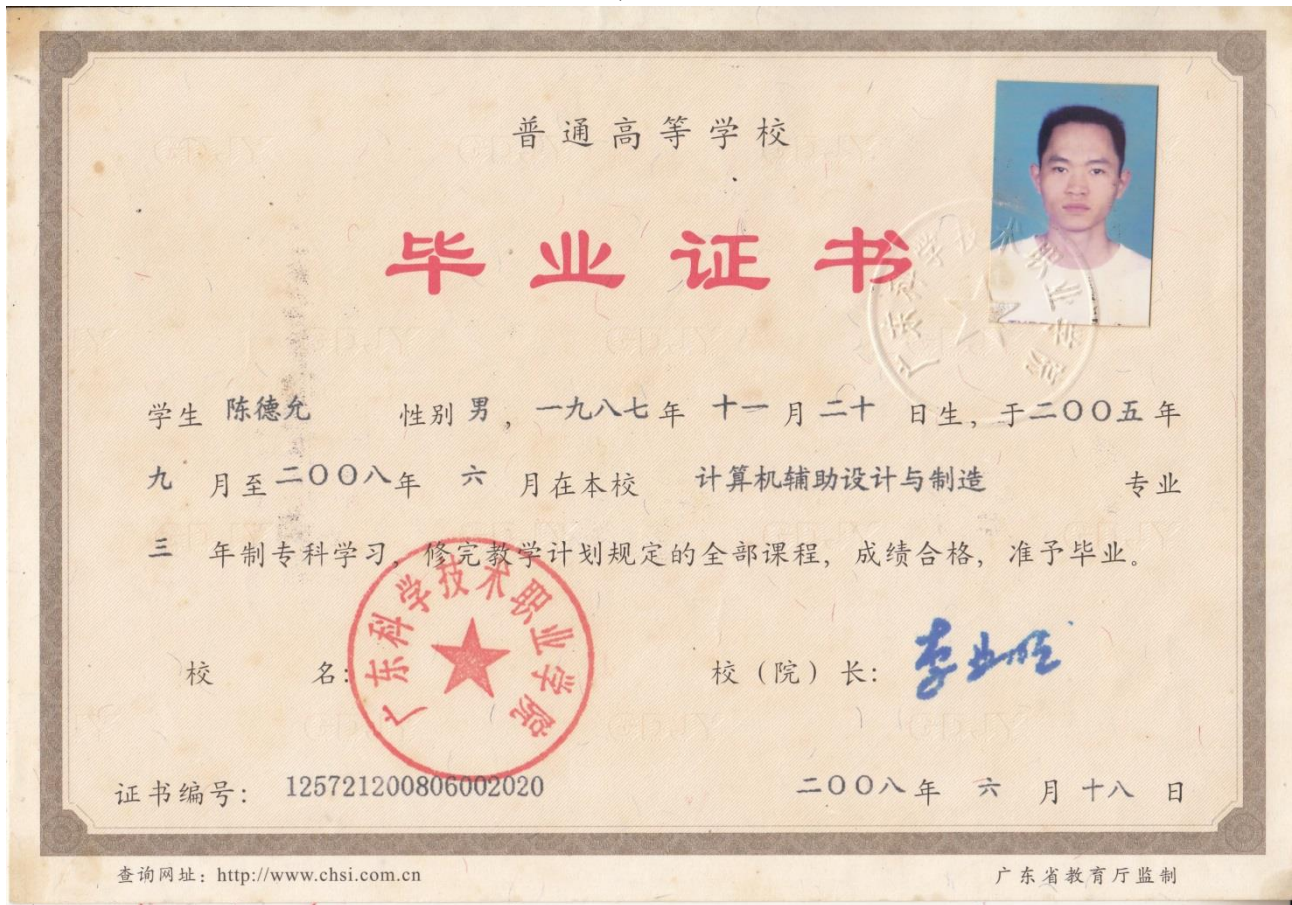 普通高等学校
毕业证书
学生 陈德允 性别 男，一九八七年 十一 月 二十 日生，于二〇〇五年
九 月至二〇〇八年 六 月在本校 计算机辅助设计与制造 专业
三 年制专科学习，修完教学计划规定的全部课程，成绩合格，准予毕业。
校 名：
广东科学技术职业学院
校（院）长：
证书编号：125721200806002020
二〇〇八年 六 月 十八 日
查询网址：http://www.chsi.com.cn
广东省教育厅监制
广东科学技术职业学院